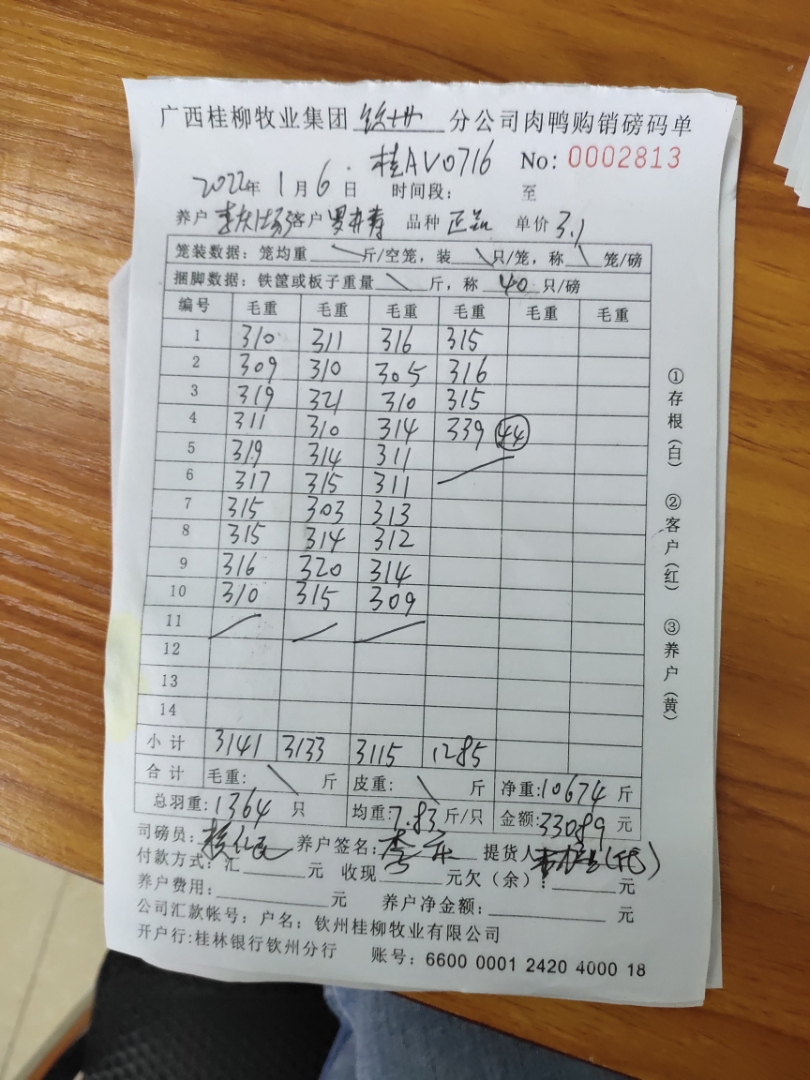 广西桂柳牧业集团 钦州 分公司肉鸭购销磅码单
桂AV0716 No: 0002813
2022年 1月 6日 时间段： 至
养户 客户 品种 正品 单价 3.1
笼装数据：笼均重 斤/空笼，装 只/笼，称 笼/磅
捆脚数据：铁筐或板子重量 斤，称 40 只/磅
编号 毛重 毛重 毛重 毛重 毛重 毛重
1 310 311 316 315
2 309 310 305 316
3 319 321 310 315
4 311 310 314 339 44
5 319 314 311
6 317 315 311
7 315 303 313
8 315 314 312
9 316 320 314
10 310 315 309
11
12
13
14
小计 3141 3133 3115 1285
合计 毛重： 斤 皮重： 斤 净重：10674 斤
总羽重：1364 只 均重：7.83 斤/只 金额：33089 元
司磅员： 养户签名： 提货人
付款方式：汇 元 收现 元欠（余）： 元
养户费用： 元 养户净金额： 元
公司汇款帐号：户名：钦州桂柳牧业有限公司
开户行：桂林银行钦州分行 账号：6600 0001 2420 4000 18
①存根（白） ②客户（红） ③养户（黄）